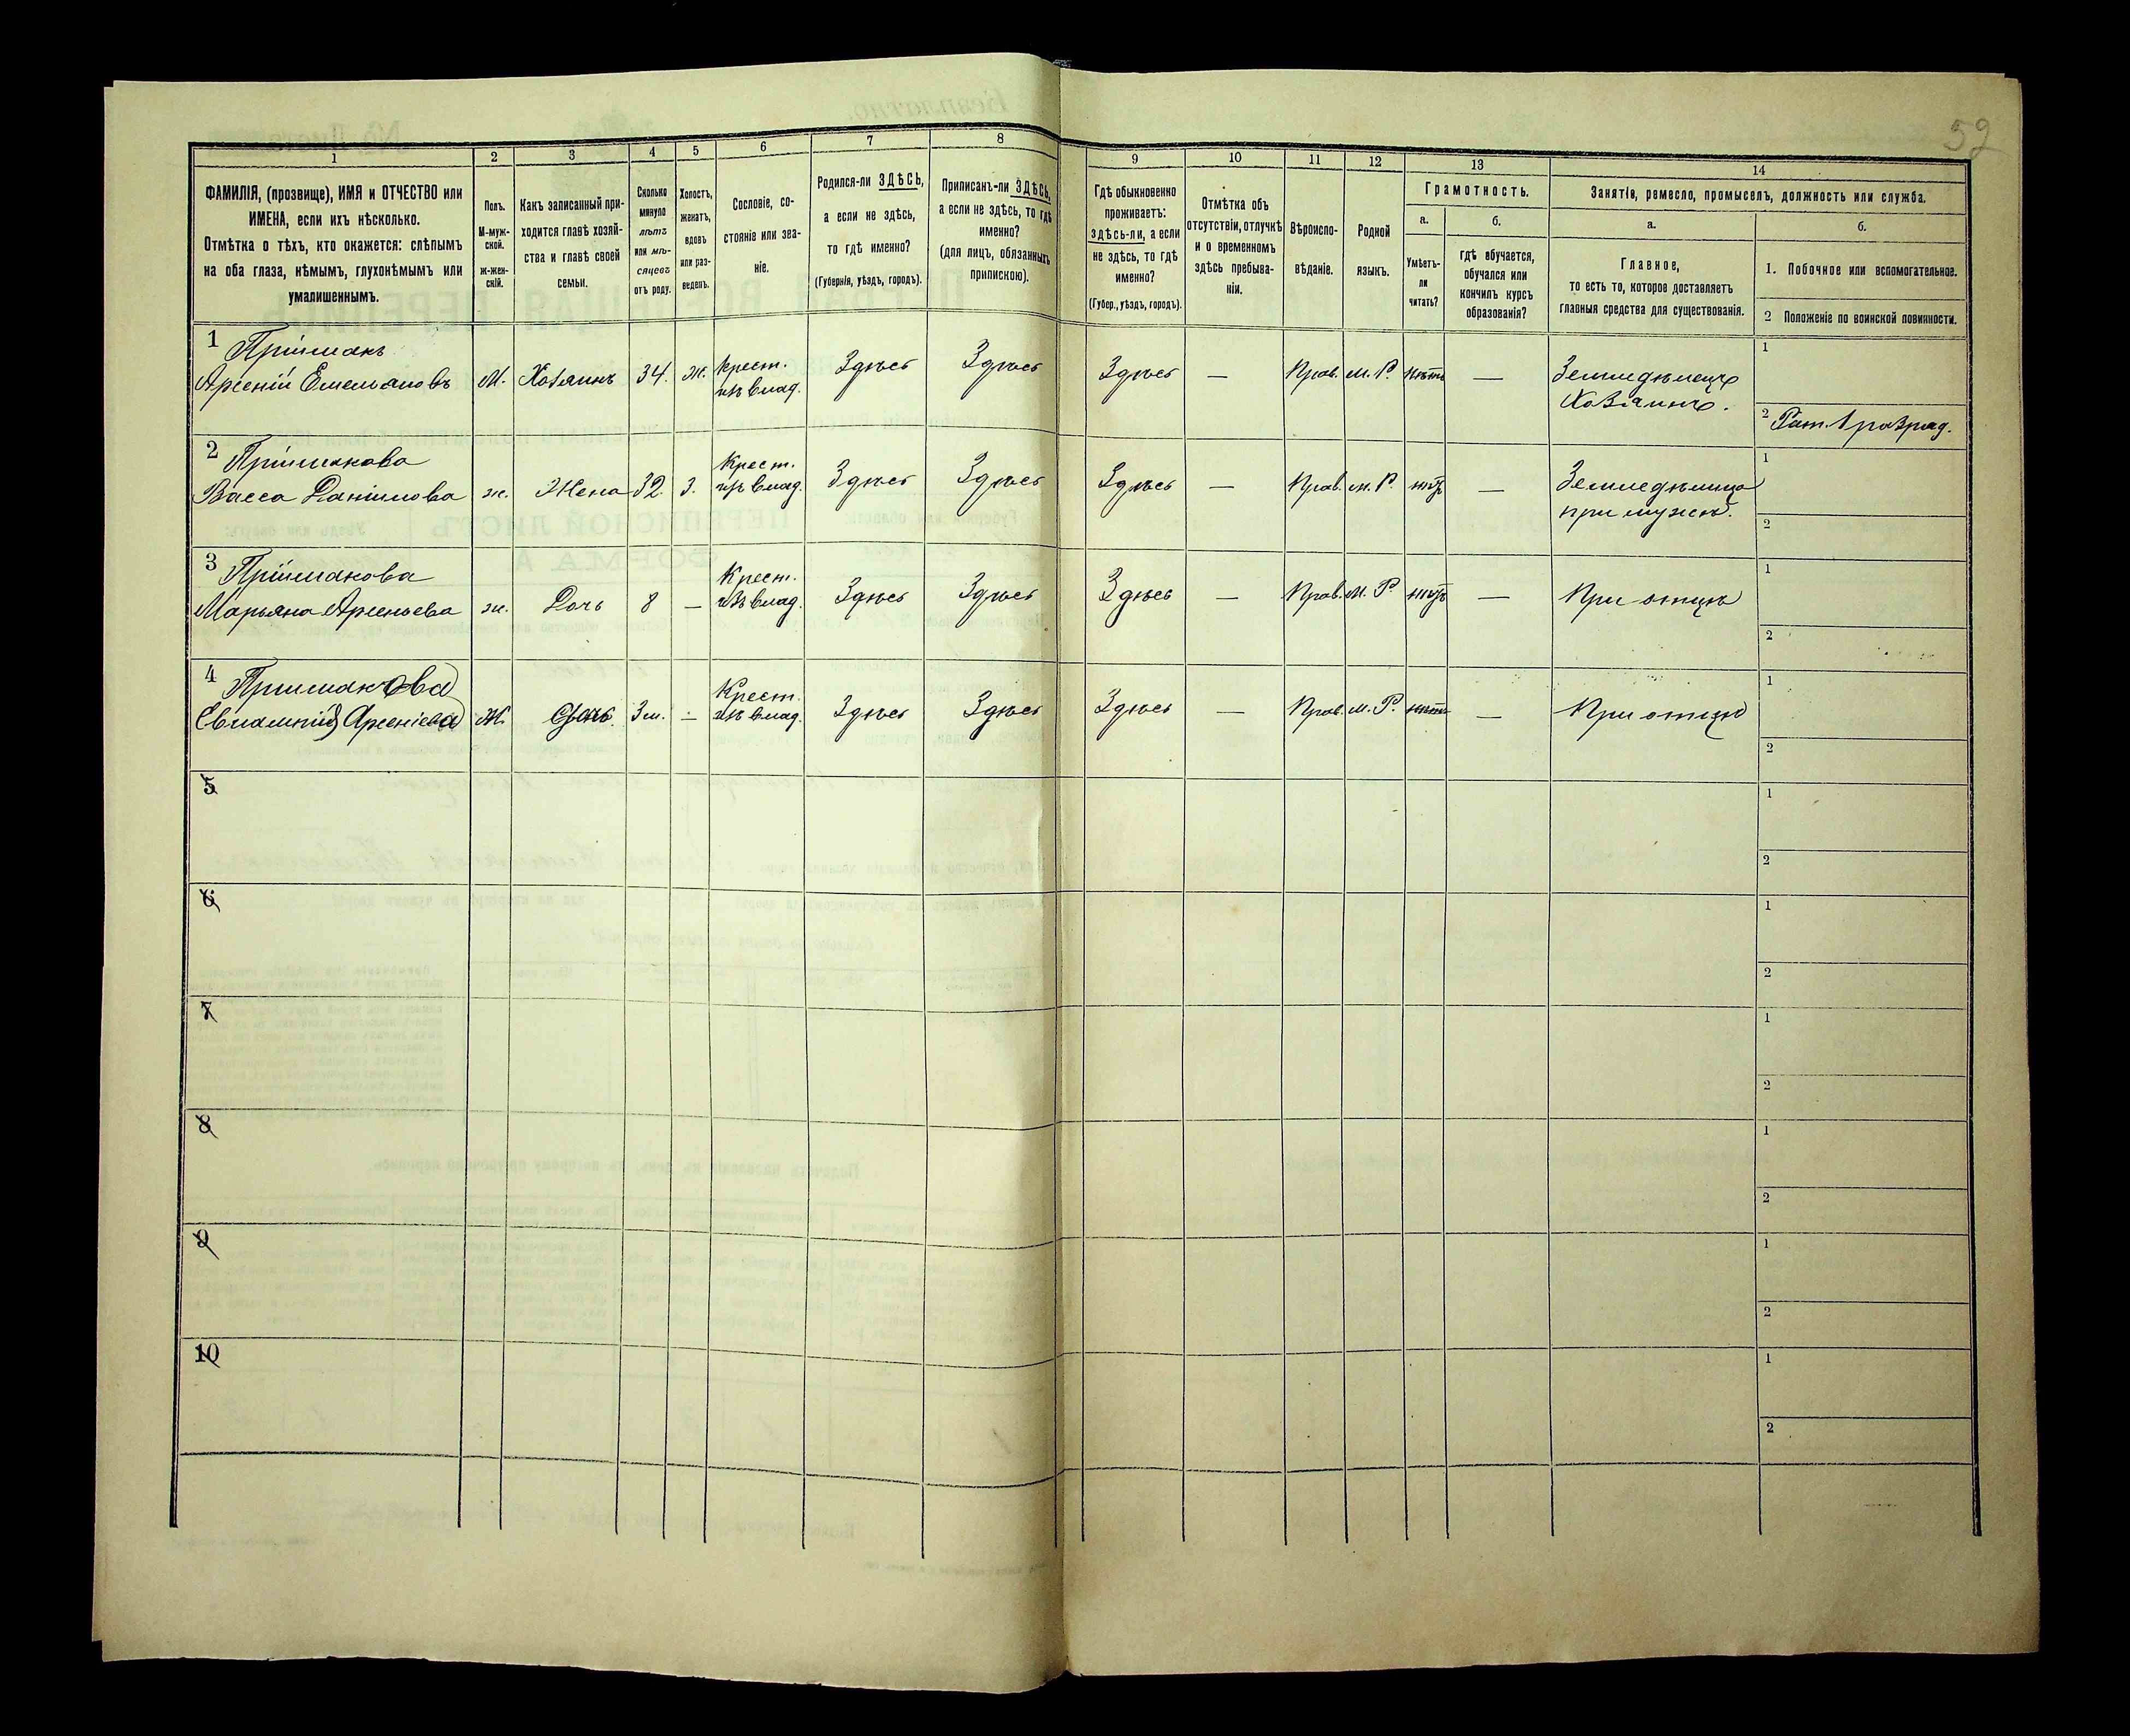 52
1
2
3
4
5
6
7
8
9
10
11
12
13
14
ФАМИЛІЯ, (прозвище), ИМЯ и ОТЧЕСТВО или
ИМЕНА, если ихъ нѣсколько.
Отмѣтка о тѣхъ, кто окажется: слѣпымъ
на оба глаза, нѣмымъ, глухонѣмымъ или
умалишеннымъ.
Полъ.
М-муж-
ской.
ж-жен-
скій.
Какъ записанный при-
ходится главѣ хозяй-
ства и главѣ своей
семьи.
Сколько
минуло
лѣтъ
или мѣ-
сяцевъ
отъ роду.
Холостъ,
женатъ,
вдовъ
или раз-
веденъ.
Сословіе, со-
стояніе или зва-
ніе.
Родился-ли ЗДѢСЬ,
а если не здѣсь,
то гдѣ именно?
(Губернія, уѣздъ, городъ).
Приписанъ-ли ЗДѢСЬ,
а если не здѣсь, то гдѣ
именно?
(для лицъ, обязанныхъ
припискою).
Гдѣ обыкновенно
проживаетъ:
здѣсь-ли, а если
не здѣсь, то гдѣ
именно?
(Губер., уѣздъ, городъ).
Отмѣтка объ
отсутствіи, отлучкѣ
и о временномъ
здѣсь пребыва-
ніи.
Вѣроиспо-
вѣданіе.
Родной
языкъ.
Грамотность.
а.
б.
Умѣетъ-
ли
читать?
гдѣ обучается,
обучался или
кончилъ курсъ
образованія?
Занятія, ремесло, промыселъ, должность или служба.
а.
б.
Главное,
то есть то, которое доставляетъ
главныя средства для существованія.
1. Побочное или вспомогательное.
2 Положеніе по воинской повинности.
1 Пріймакъ
Арсеній Емельяновъ М. Хозяинъ 34. ж. Крест. изъ влад. Здѣсь Здѣсь Здѣсь — Прав. м. Р. нѣтъ — Земледѣлецъ
Хозяинъ.
1
2 Рат. 1 разряд.
2 Пріймакова
Васса Данілова ж. Жена 32 З. Крест. изъ влад. Здѣсь Здѣсь Здѣсь — Прав. м. Р. нѣтъ — Земледѣлица
при мужѣ.
1
2
3 Пріймакова
Марьяна Арсеньева ж. Дочь 8 — Крест. изъ влад. Здѣсь Здѣсь Здѣсь — Прав. м. Р. нѣтъ — При отцѣ
1
2
4 Приймакова
Евлампія Арсеніева Ж. 3 м. — Крест. изъ влад. Здѣсь Здѣсь Здѣсь — Прав. м. Р. нѣтъ — При отцѣ
1
2
5
1
2
6
1
2
7
1
2
8
1
2
9
1
2
10
1
2